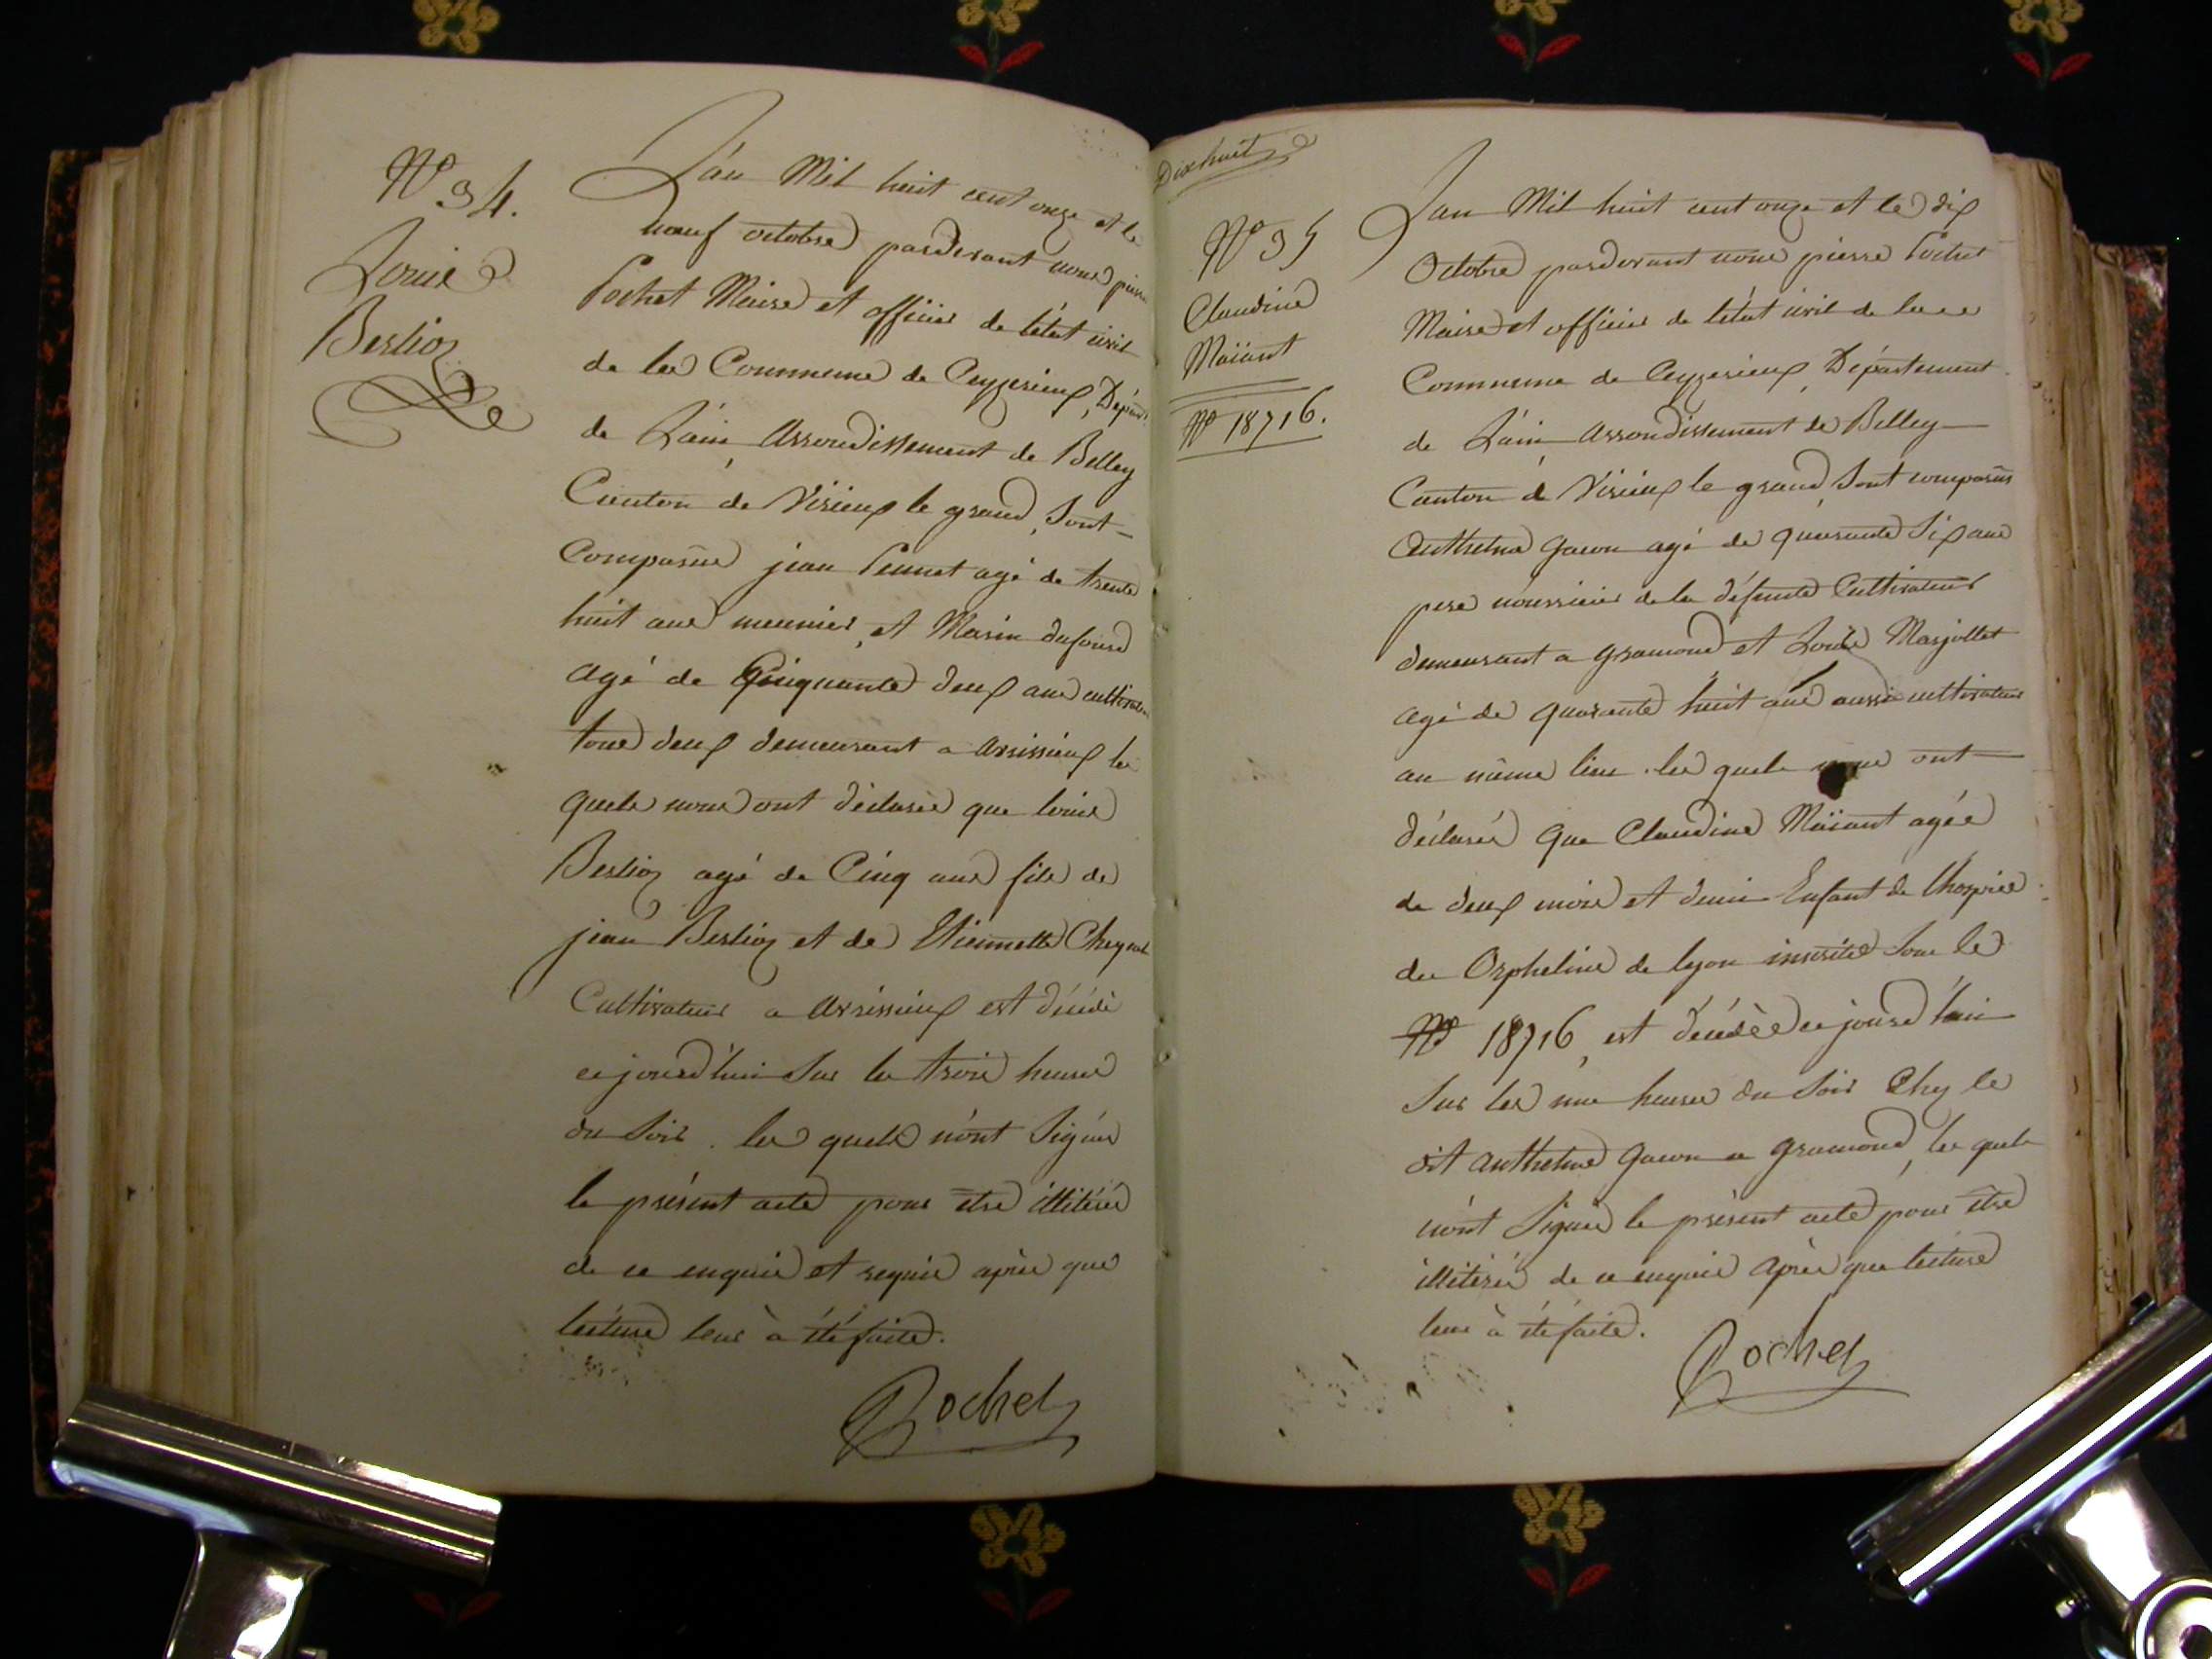 N° 34.
Louis
Berlioz
L'an Mil huit cent onze et le
neuf octobre pardevant nous pierre
Pochet Maire et officier de l'état civil
de la Commune de Ceyzerieux, Départ.
de L'ain, Arrondissement de Belley
Canton de Virieux le grand, Sont
Comparus jean Pennet agé de trente
huit ans meunier, et Marin dufour
agé de Cinquante deux ans cultivateur
tous deux demeurant a avrissieux les
quels nous ont déclaré que louis
Berlioz agé de Cinq ans fils de
jean Berlioz et de Etiennette
Cultivateur a avrissieux est décédé
cejourd'hui sur les trois heures
du Soir. les quels n'ont Signés
le présent acte pour être illitérés
de ce enquis et requis après que
lecture leur à été faite.
Pochet
Dixhuit
N° 35
Claudine
Maïant
N° 18716.
L'an Mil huit cent onze et le dix
Octobre pardevant nous pierre Pochet
Maire et officier de l'état civil de la
Commune de Ceyzerieux, Département
de L'ain, Arrondissement de Belley
Canton de Virieux le grand, Sont comparus
Anthelme gacon agé de quarante Six ans
pere nourricier de la défunte Cultivateur
demeurant a gramond et Louis Marjollet
agé de quarante huit ans aussi cultivateur
au même lieu. les quels nous ont
déclaré que Claudine Maïant agée
de deux mois et demi Enfant de l'hospice
des Orphelins de lyon inscrite Sous le
N° 18716, est décédée cejourd'hui
Sur les une heures du Soir Chez le
dit anthelme gacon a gramond, les quels
n'ont Signés le présent acte pour être
illitérés de ce enquis Après que lecture
leur à été faite.
Pochet